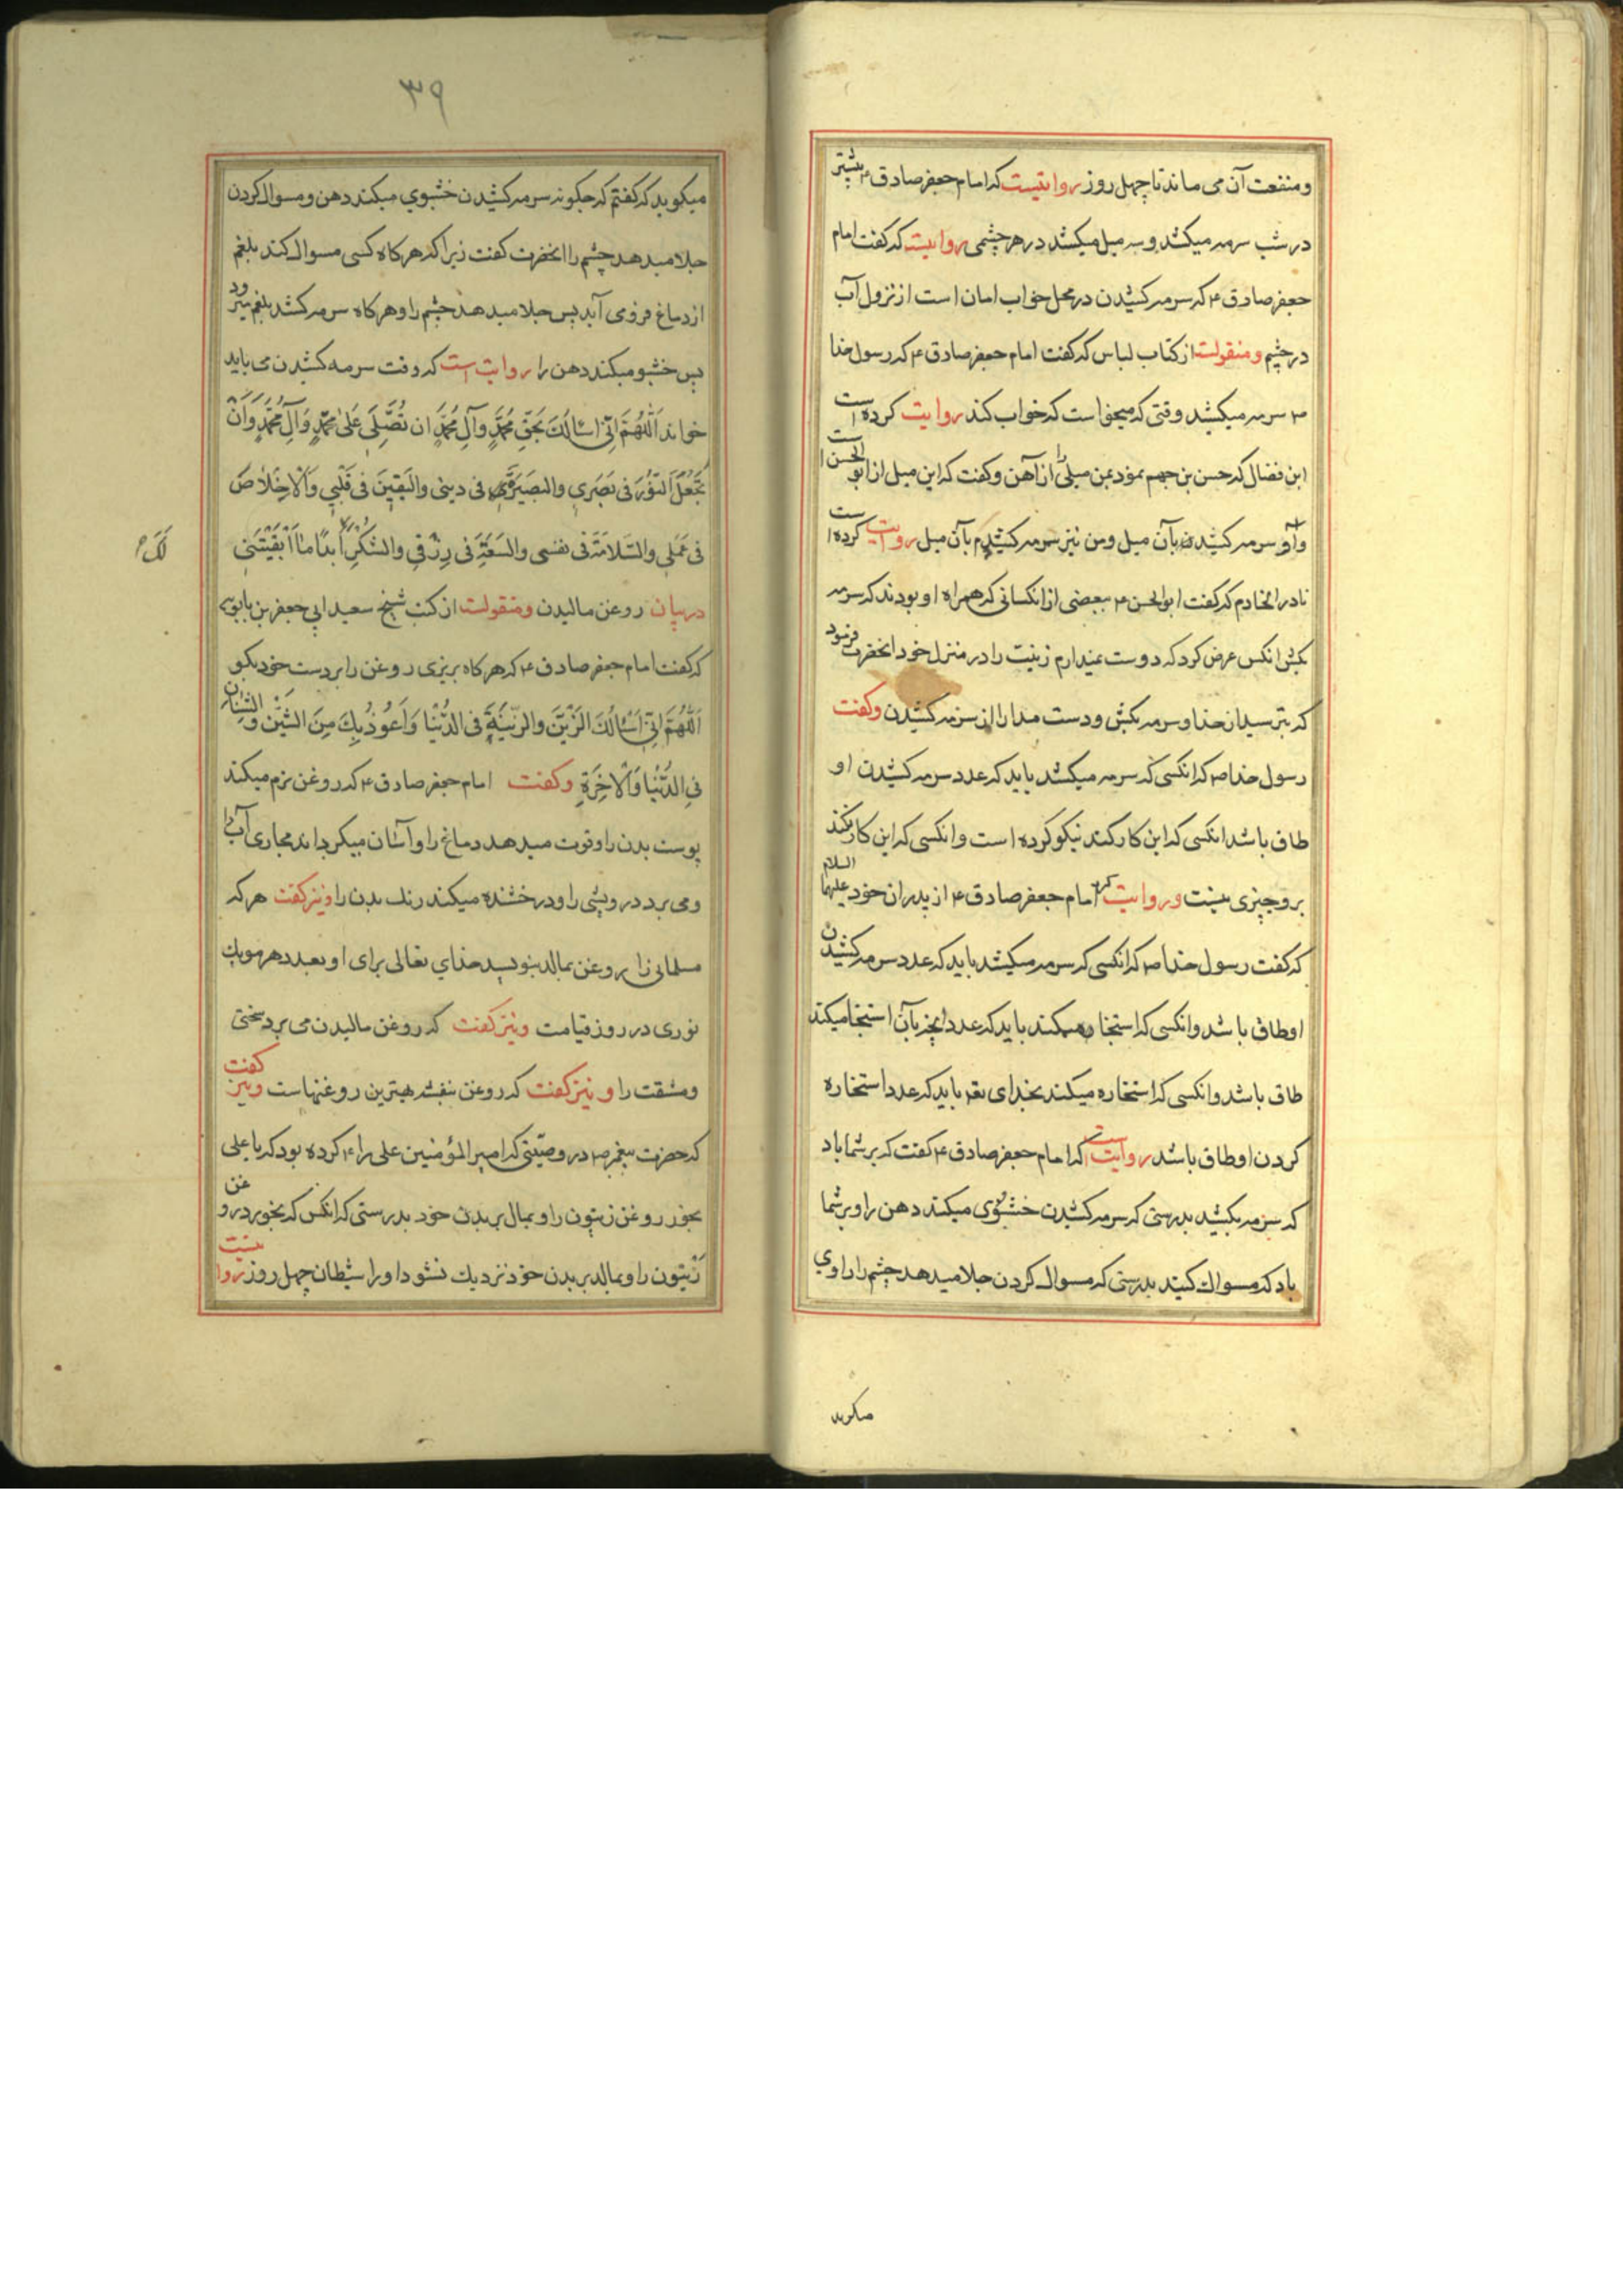 ومنفعت آن می ماند تا چهل روز روایتیست که امام جعفر صادق ۴ بیشتر
در شب سرمه میکشد وسه میل میکشد در هر چشمی روایست که گفت امام
جعفر صادق ۴ که سرمه کشیدن در محل خواب امان است از نزول آب
در چشم ومنقولست از کتاب لباس که گفت امام جعفر صادق ۴ که رسول خدا
۳ سرمه میکشید وقتی که میخواست که خواب کند روایت کرده است
ابن فضال که حسن بن جهم نمود بمن میلی را از آهن وگفت که این میل از ابو الحسن ا ست
سرمه کشیدن بآن میل ومن نیز سرمه کشیدم بآن میل روایت کرده ا ست
نادر الخادم که گفت ابو الحسن ۳ ببعضی از انکسانی که همراه او بودند که سرمه
بکش انکس عرض کرد که دوست نمیدارم زینت را در منزل خود انحضرت فرمود
که بترس از خدا وسرمه بکش ودست مدار از سرمه کشیدن وگفت
رسول خدا صم که انکسی که سرمه میکشد باید که عدد سرمه کشیدن او
طاق باشد انکسی که این کار کند نیکو کرده است وانکسی که این کار نکند
برو چیزی نیست وروایت کرد امام جعفر صادق ۴ از پدران خود علیهما السلام
که گفت رسول خدا صم که انکسی که سرمه میکشد باید که عدد سرمه کشیدن
او طاق باشد وانکسی که استنجا میکند باید که عدد انچه بآن استنجا میکند
طاق باشد وانکسی که استخاره میکند بخدای تعم باید که عدد استخاره
کردن او طاق باشد روایت است که امام جعفر صادق ۴ گفت که بر شما باد
که سرمه بکشید بدرستی که سرمه کشیدن خشبوی میکند دهن را وبر شما
باد که مسواك کنید بدرستی که مسواك کردن جلا میدهد چشم را راوی
میکوید
۳۹
میکوید که گفتم که چکونه سرمه کشیدن خشبوی میکند دهن ومسواك کردن
جلا میدهد چشم را انحضرت گفت زیرا که هر کاه کسی مسواك کند بلغم
از دماغ فرو می آید پس جلا میدهد چشم را وهر کاه سرمه کشد بلغم میرود
پس خشبو میکند دهن را روایت است که وقت سرمه کشیدن می باید
خواند اَللّٰهُمَّ اِنّی اَسْاَلُكَ بِحَقِّ مُحَمَّدٍ وَآلِ مُحَمَّدٍ ان تُصَلِّیَ عَلیٰ مُحَمَّدٍ وَآلِ مُحَمَّدٍ وَاَنْ
تَجْعَلَ النّوُرَ فی بَصَری والبَصیرَةَ فی دینی والیَقینَ فی قَلْبی وَالْاِخْلاٰصَ
فی عَمَلی والسَّلامَةَ فی نفسی والسَّعَةَ فی رِزْقی والشُّکْرَ اَبَدًا مٰا اَبْقَیْتَنی
لَكَ
در بیان روغن مالیدن ومنقولست از کتب شیخ سعید ابی جعفر بن بابویه
که گفت امام جعفر صادق ۴ که هر کاه بریزی روغن را بر دست خود بکو
اَللّٰهُمَّ اِنّی اَسْاَلُكَ الزَّیْنَ والزّینَةَ فی الدُّنْیا وَاَعُوذُ بِكَ مِنَ الشَّیْنِ وَالشَّنَاٰنِ
فِی الدُّنْیٰا وَالْاٰخِرَةِ وگفت امام جعفر صادق ۴ که روغن نرم میکند
پوست بدن را وقوت میدهد دماغ را وآسان میکرداند مجاری آب را
ومی برد درویشی را ودرخشنده میکند رنك بدن را ونیز گفت هر که
مسلمانی را بروغن بمالد بنویسد خدای تعالی برای او بعدد هر مو یك
نوری در روز قیامت ونیز گفت که روغن مالیدن می برد سختی
ومشقت را ونیز گفت که روغن بنفشه بهترین روغنهاست ونیز گفت
که حضرت پیغمبر صم در وصیّتی که امیر المؤمنین علی را ۴ کرده بود که یا علی
بخور روغن زیتون را وبمال بر بدن خود بدرستی که انکس که بخورد روغن
زَیتون را وبمالد بر بدن خود نزدیك نشود او را شیطان چهل روز روا یتست